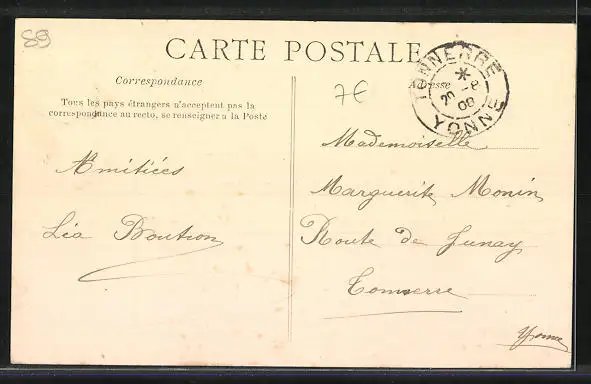 89
CARTE POSTALE
TONNERRE
* 
20 -8
08
YONNE
Correspondance
Adresse
7€
Tous les pays étrangers n'acceptent pas la
correspondance au recto, se renseigner a la Poste
Mademoiselle
Amitiées
Marguerite Monin
Léa Boution
Route de Junay
Tonnerre
Yonne